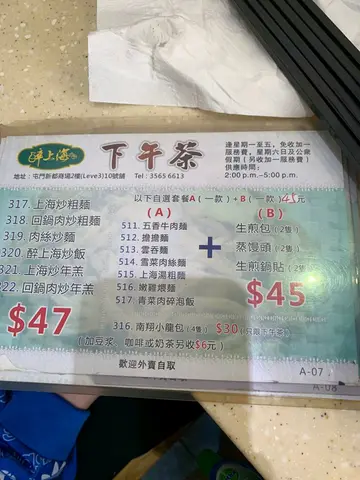 醉上海
下午茶
逢星期一至五,免收加一
服務費,星期六日及公衆
假期(另收加一服務費)
供應時間:
2:00 p.m.~5:00 p.m.
地址:屯門新都商場2樓(Leve3)10號舖 Tel:3565 6613
317. 上海炒粗麵
318. 回鍋肉炒粗麵
319. 肉絲炒麵
320. 醉上海炒飯
321. 上海炒年羔
322. 回鍋肉炒年羔
$47
以下自選套餐A(一款)+B(一款)
(A)
511. 五香牛肉麵
512. 擔擔麵
513. 雲吞麵
514. 雪菜肉絲麵
515. 上海湯粗麵
516. 嫩雞煨麵
517. 青菜肉碎泡飯
+
(B)
生煎包(2隻)
蒸饅頭(2隻)
生煎鍋貼(2隻)
$45
316. 南翔小籠包(4隻)$30(只限下午茶)
(加豆浆、咖啡或奶茶另收$6元)
歡迎外賣自取
A-07
A-08